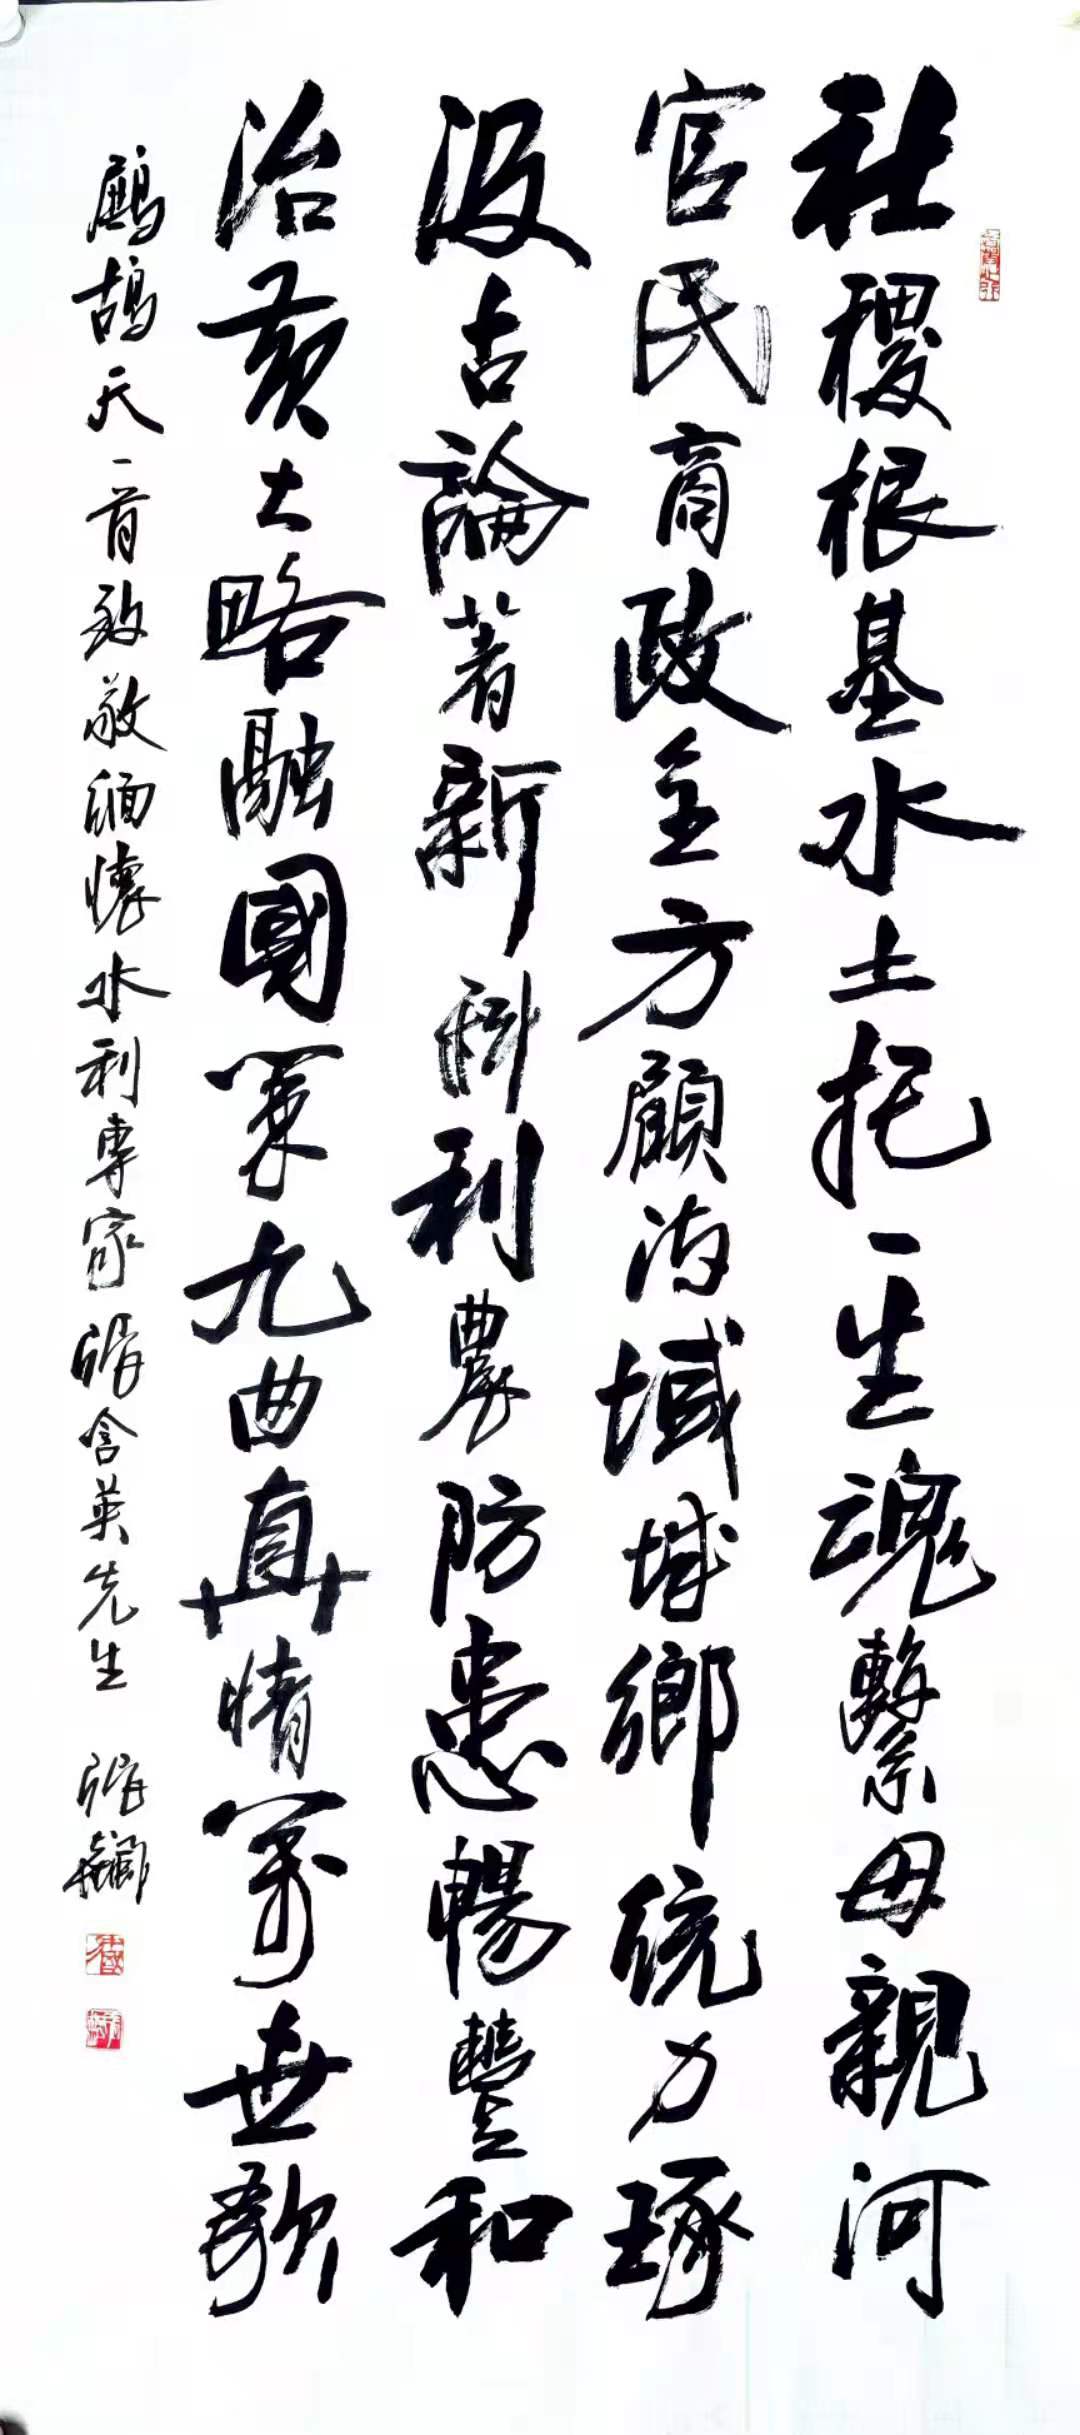 社稷根基水土托一生魂繫母親河
官民商政主方顧海域城鄉統力琢
汲古論著新科利農防患暢豐和
治黃大略融國策九曲真情萬世歌
鷓鴣天一首致敬緬懷水利專家張含英先生 張